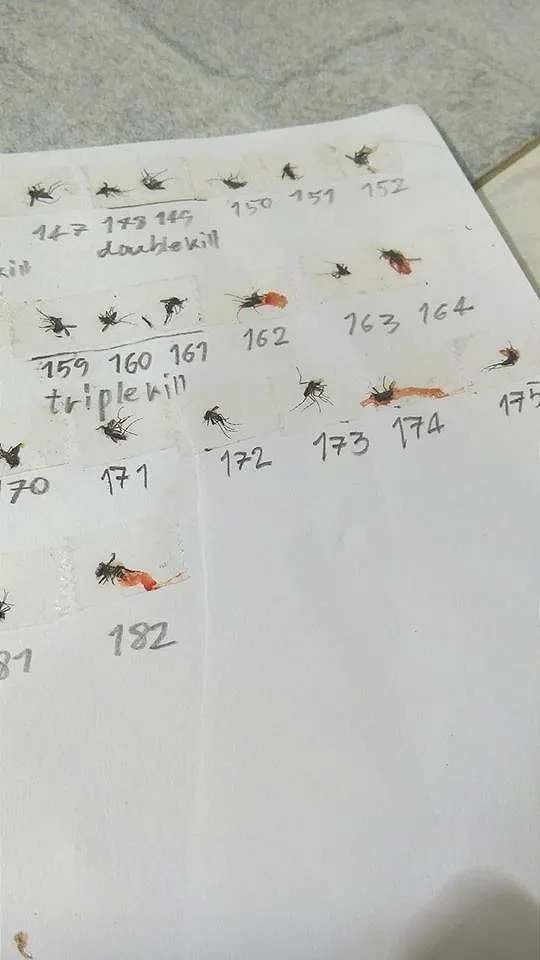 147 148 149 150 151 152
kill doublekill
159 160 161 162 163 164
triplekill
170 171 172 173 174 175
81 182